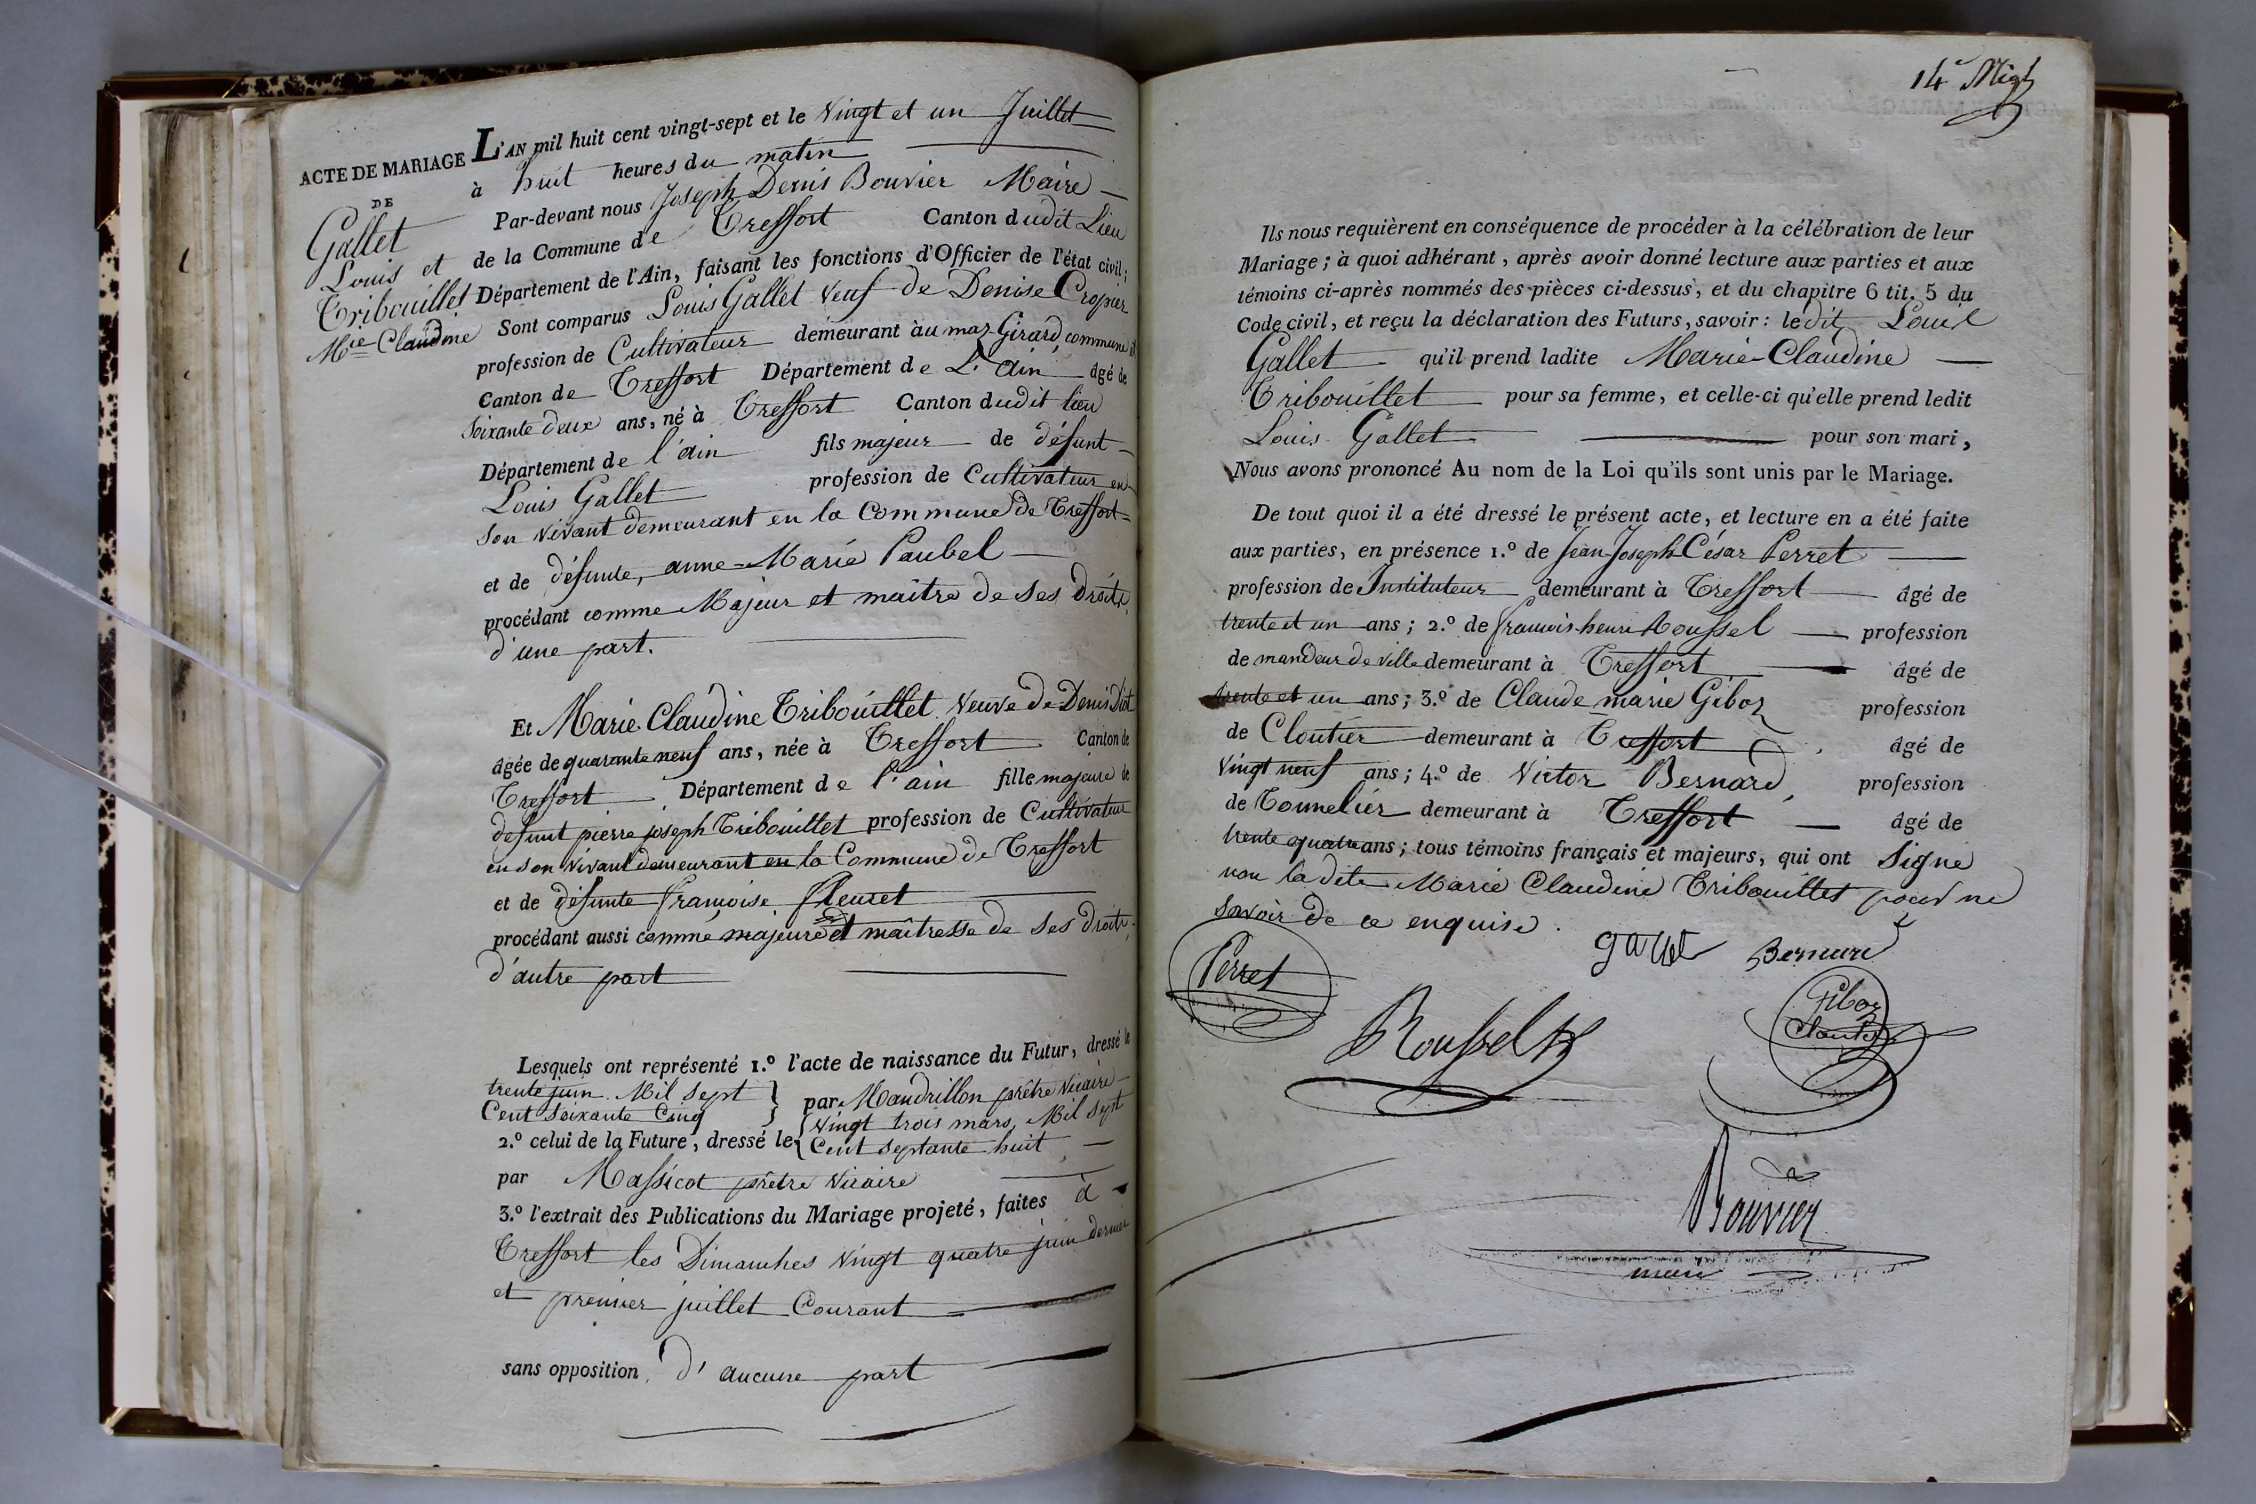 ACTE DE MARIAGE
DE
Gallet
Louis et
Tribouillet
Mie Claudine
L'AN mil huit cent vingt-sept et le Vingt et un Juillet
à huit heures du matin
Par-devant nous Joseph Denis Bouvier Maire
de la Commune de Treffort Canton dudit Lieu
Département de l'Ain, faisant les fonctions d'Officier de l'état civil;
Sont comparus Louis Gallet Veuf de Denise Cropier
profession de Cultivateur demeurant àu maz Girard, commune et
Canton de Treffort Département de L'ain âgé de
soixante deux ans, né à Treffort Canton dudit lieu
Département de l'ain fils majeur de défunt
Louis Gallet profession de Cultivateur en
son vivant demeurant en la Commune de Treffort
et de défunte, anne-Marie Paubel
procédant comme Majeur et maître de ses droits,
d'une part.
Et Marie Claudine Tribouillet Veuve de Denis Diot
âgée de quarante neuf ans, née à Treffort Canton de
Treffort Département de l'ain fille majeure de
défunt pierre joseph Tribouillet profession de Cultivateur
en son Vivant demeurant en la Commune de Treffort
et de défunte françoise fleuret
procédant aussi comme majeure et maîtresse de ses droits,
d'autre part
Lesquels ont représenté 1.º l'acte de naissance du Futur, dressé le
trente juin Mil Sept
Cent soixante Cinq par Mandrillon prêtre vicaire
2.º celui de la Future, dressé le Vingt trois mars, Mil Sept
Cent septante huit
par Massicot prêtre Vicaire
3.º l'extrait des Publications du Mariage projeté, faites à
Treffort les Dimanches Vingt quatre juin dernier
et premier juillet Courant
sans opposition d'aucune part
14e Miage
Ils nous requièrent en conséquence de procéder à la célébration de leur
Mariage; à quoi adhérant, après avoir donné lecture aux parties et aux
témoins ci-après nommés des pièces ci-dessus, et du chapitre 6 tit. 5 du
Code civil, et reçu la déclaration des Futurs, savoir: ledit Louis
Gallet qu'il prend ladite Marie-Claudine
Tribouillet pour sa femme, et celle-ci qu'elle prend ledit
Louis Gallet pour son mari,
Nous avons prononcé Au nom de la Loi qu'ils sont unis par le Mariage.
De tout quoi il a été dressé le présent acte, et lecture en a été faite
aux parties, en présence 1.º de Jean-Joseph-César Perret
profession de Instituteur demeurant à Treffort âgé de
trente et un ans; 2.º de françois henri Roussel profession
de mandeur de ville demeurant à Treffort âgé de
trente et un ans; 3.º de Claude marie Giboz profession
de Cloutier demeurant à Treffort âgé de
Vingt neuf ans; 4.º de Victor Bernard, profession
de Tonnelier demeurant à Treffort âgé de
trente quatre ans; tous témoins français et majeurs, qui ont Signé
non la dite Marie Claudine Tribouillet pour ne
savoir de ce enquise.
gallet Bernard
Perret
Giboz
Cloutier
Roussel
Bouvier
maire